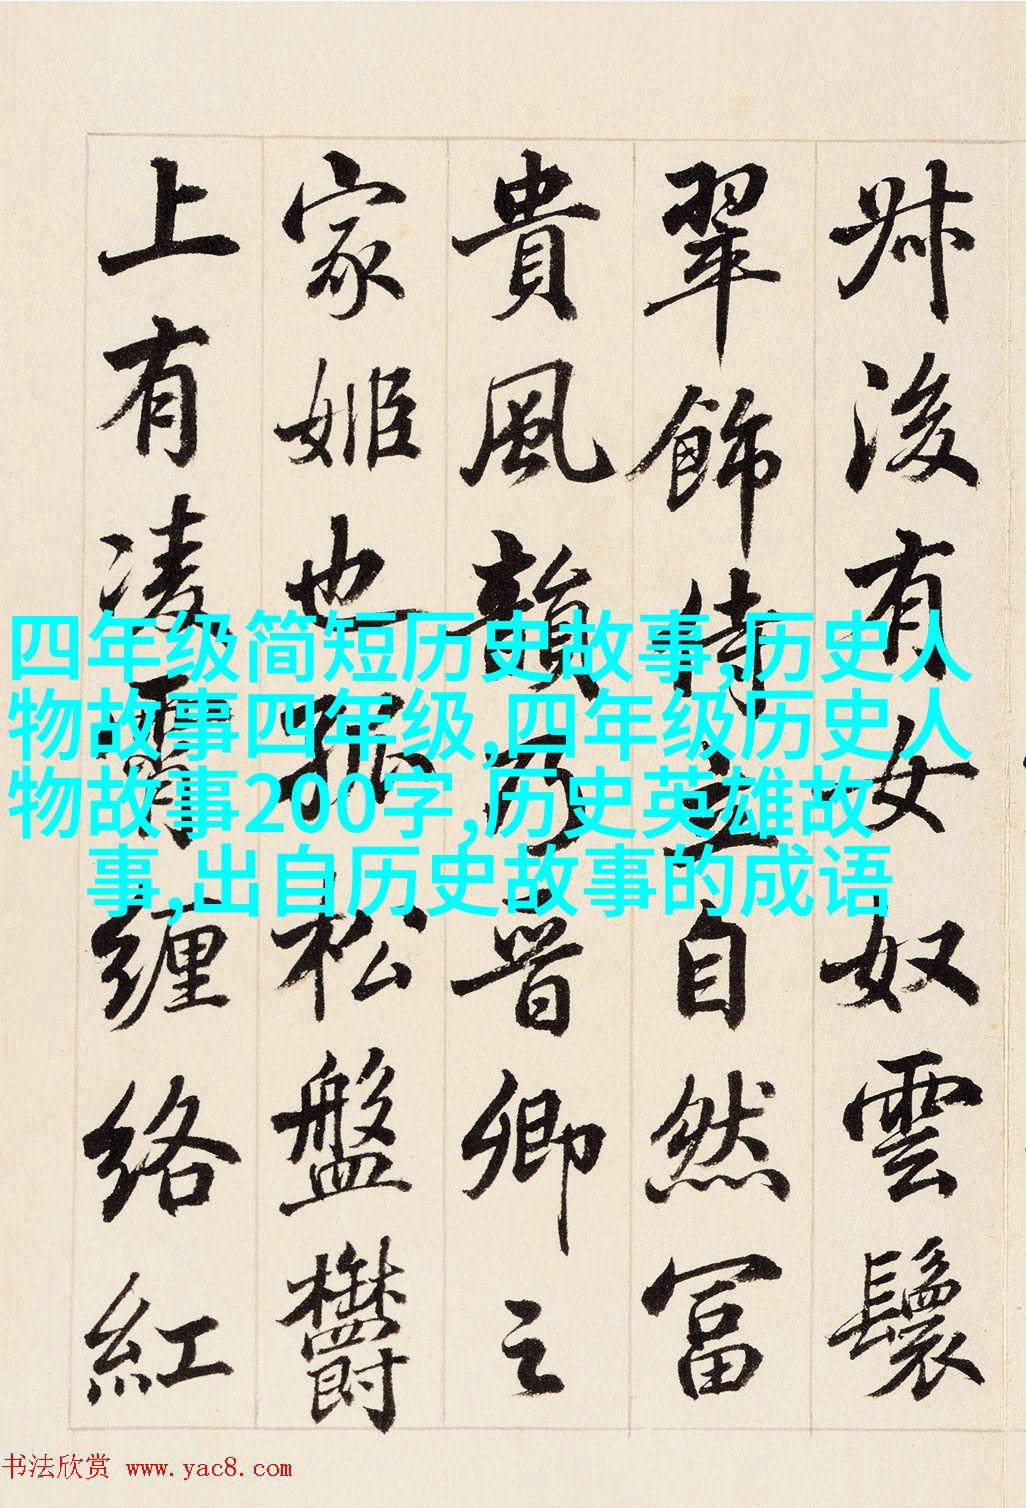 叔後有女奴雲鬟
翠飾侍立自然富
貴風韻乃晉卿之
家姬也孤松盤鬱
上有凌霄纏絡紅
四年级简短历史故事,历史人
物故事四年级,四年级历史人
物故事200字,历史英雄故
事,出自历史故事的成语
书法欣赏 www.yac8.com